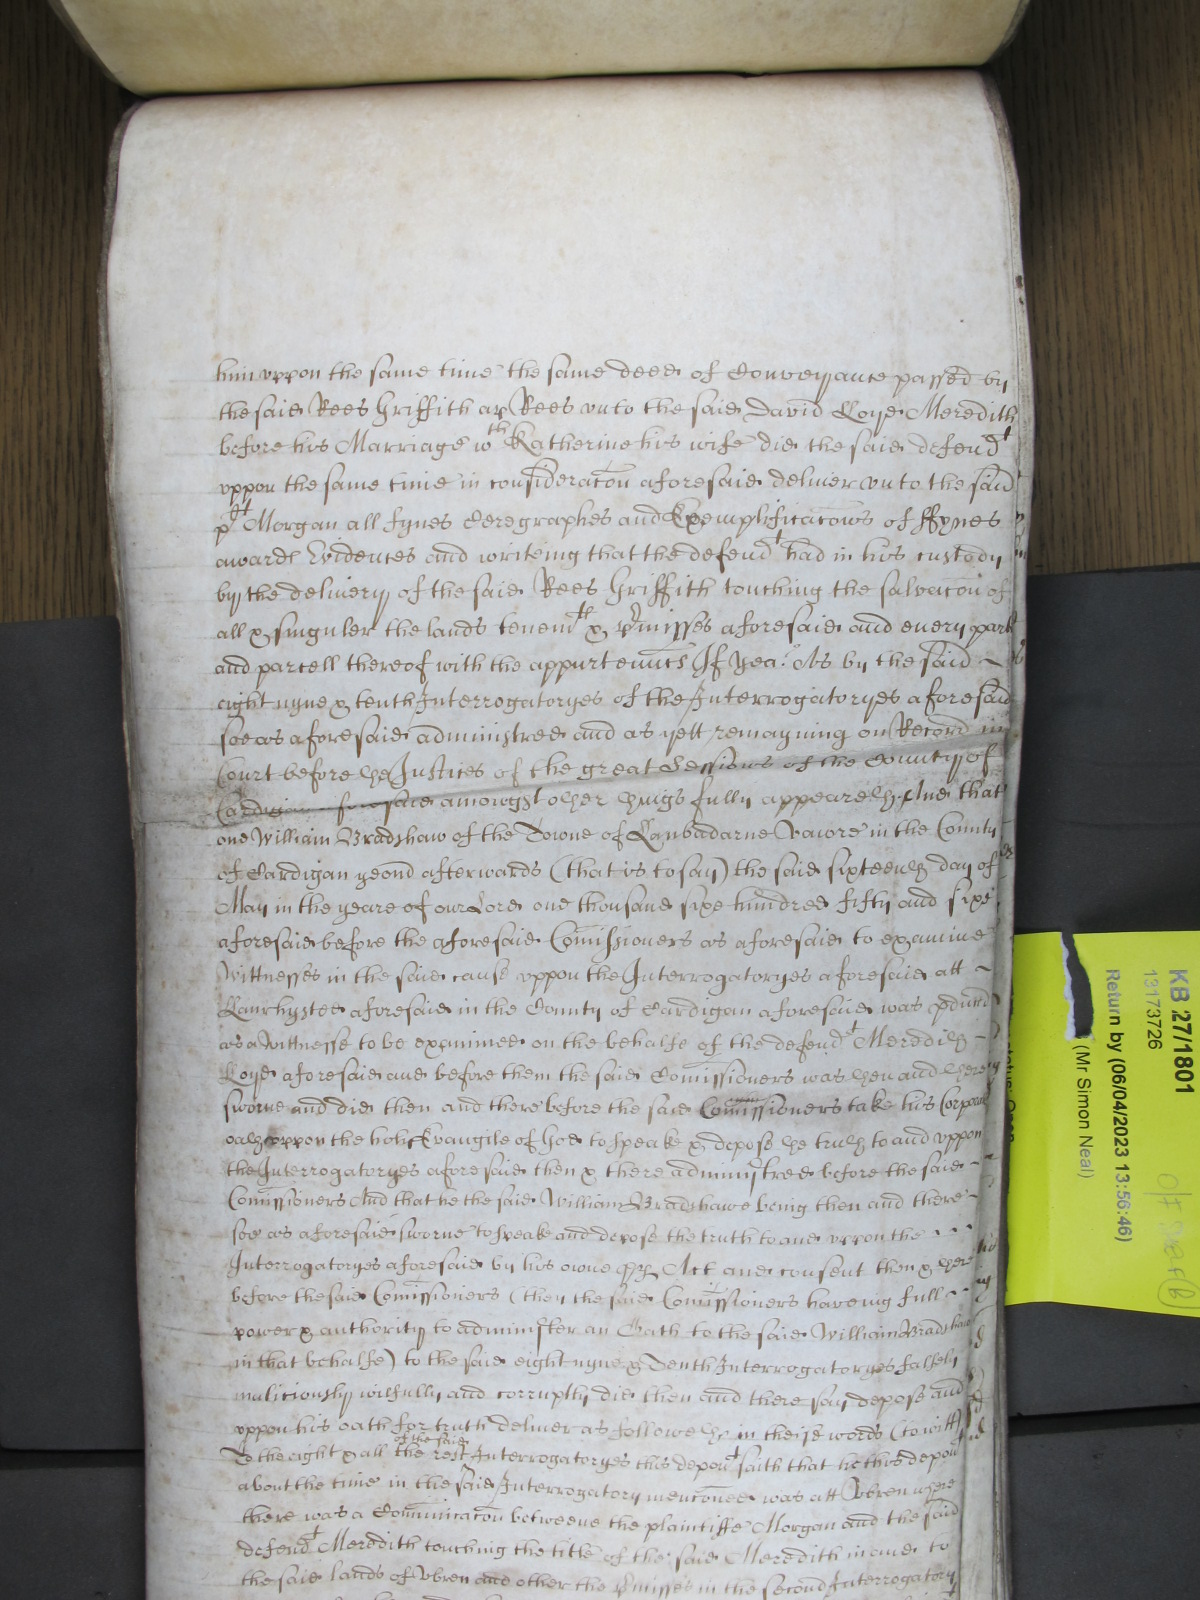 him vppon the same time the same deed of Conveyance passed by
the said Rees Griffith ap Rees vnto the said David Loyd Meredith
before his Marriage wth Katherine his wife did the said defendt
vppon the same time in consideracon aforesaid deliver vnto the said
plt Morgan all fynes Ceregraphes and Exemplificacons of ffynes
awards Evidences and writeing that the defendt had in his custody
by the delivery of the said Rees Griffith touching the salvacon of
all & singuler the lands tenemts & pmisses aforesaid and every part
and parcell thereof with the appurtenncs If yea? As by the said
eight nyne & tenth Interrogatoryes of the Interrogatoryes aforesaid
soe as aforesaid administred and as yett remayning on Record in
Court before the Justices of the great Sessions of the County of
Cardigan aforesaid amongst other things fully appeareth And that
one William Bradshaw of the Towne of Lanbadarne Vawre in the County
of Cardigan yeond afterwards (that is to say) the said sixteenth day of
May in the yeare of our Lord one thousand sixe hundred fifty and sixe
aforesaid before the aforesaid Comissioners as aforesaid to examine
Wittnesses in the said cause vppon the Interrogatoryes aforesaid att
Lanrhysted aforesaid in the County of Cardigan aforesaid was pduced
as a Wittnesse to be examined on the behalfe of the defendt Meredith
Loyd aforesaid and before them the said Comissioners was then and there
sworne and did then and there before the said Comissioners take his Corporall
oath vppon the holie Evangile of God to speake & depose the truth to and vppon
the Interrogatoryes aforesaid then & there administred before the said
Comissioners And that he the said William Bradshawe being then and there
soe as aforesaid sworne to speake and depose the truth to and vppon the
Interrogatoryes aforesaid by his owne Act and consent then & there
before the said Comissioners (then the said Comissioners haveing full
power & authority to administer an Oath to the said William Bradshaw
in that behalfe) to the said eight nyne & Tenth Interrogatoryes falsely
maliciously wilfully and corruptly did then and there say depose and
vppon his oath for truth deliver as followeth in theise words (to witt)
To the eight & all the rest of the said Interrogatoryes this depont saith that he this depont
about the time in the said Interrogatory menconed was att Vbren where
there was a Comunicacon betweene the plaintiffe Morgan and the said
defendt Meredith touching the title of the said Meredith in and to
the said lands of Vbren and other the pmisses in the second Interrogatory
KB 27/1801
13173726
Return by (06/04/2023 13:56:46)
(Mr Simon Neal)